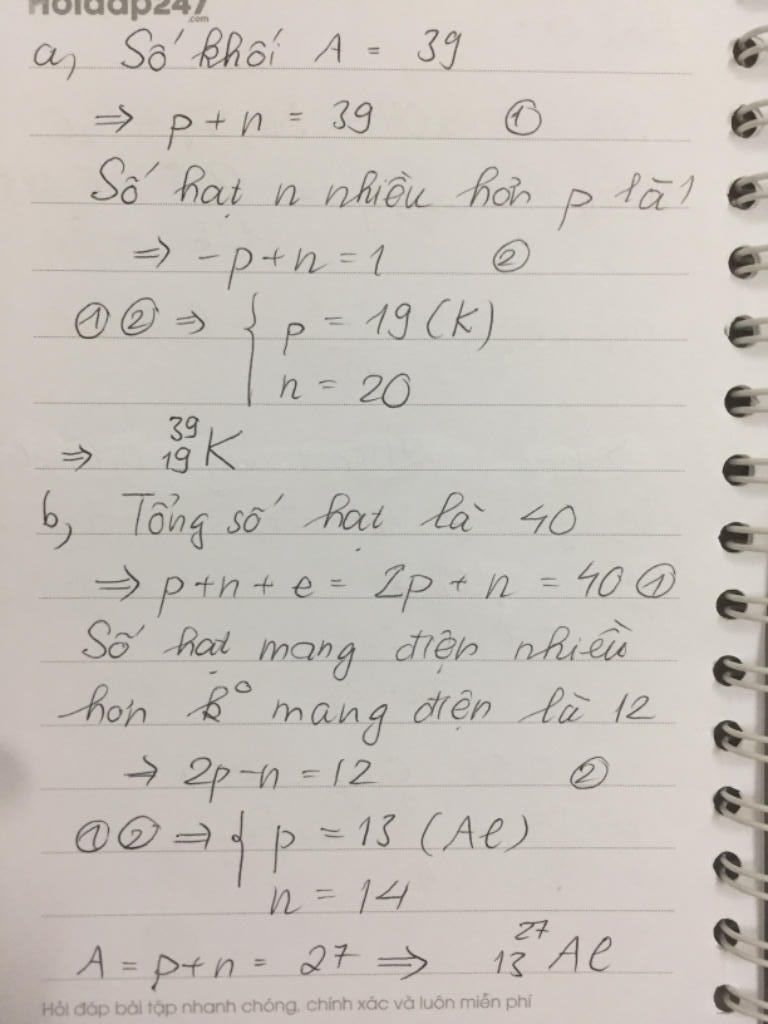 Hoidap247
.com
a, Số khối A = 39
⇒ p + n = 39 ①
Số hạt n nhiều hơn p là 1
⇒ -p + n = 1 ②
① ② ⇒ { p = 19 (K)
n = 20
⇒ ³⁹₁₉K
b, Tổng số hạt là 40
⇒ p + n + e = 2p + n = 40 ①
Số hạt mang điện nhiều
hơn k° mang điện là 12
→ 2p - n = 12 ②
① ② ⇒ { p = 13 (Al)
n = 14
A = p + n = 27 ⇒ ²⁷₁₃Al
Hỏi đáp bài tập nhanh chóng, chính xác và luôn miễn phí